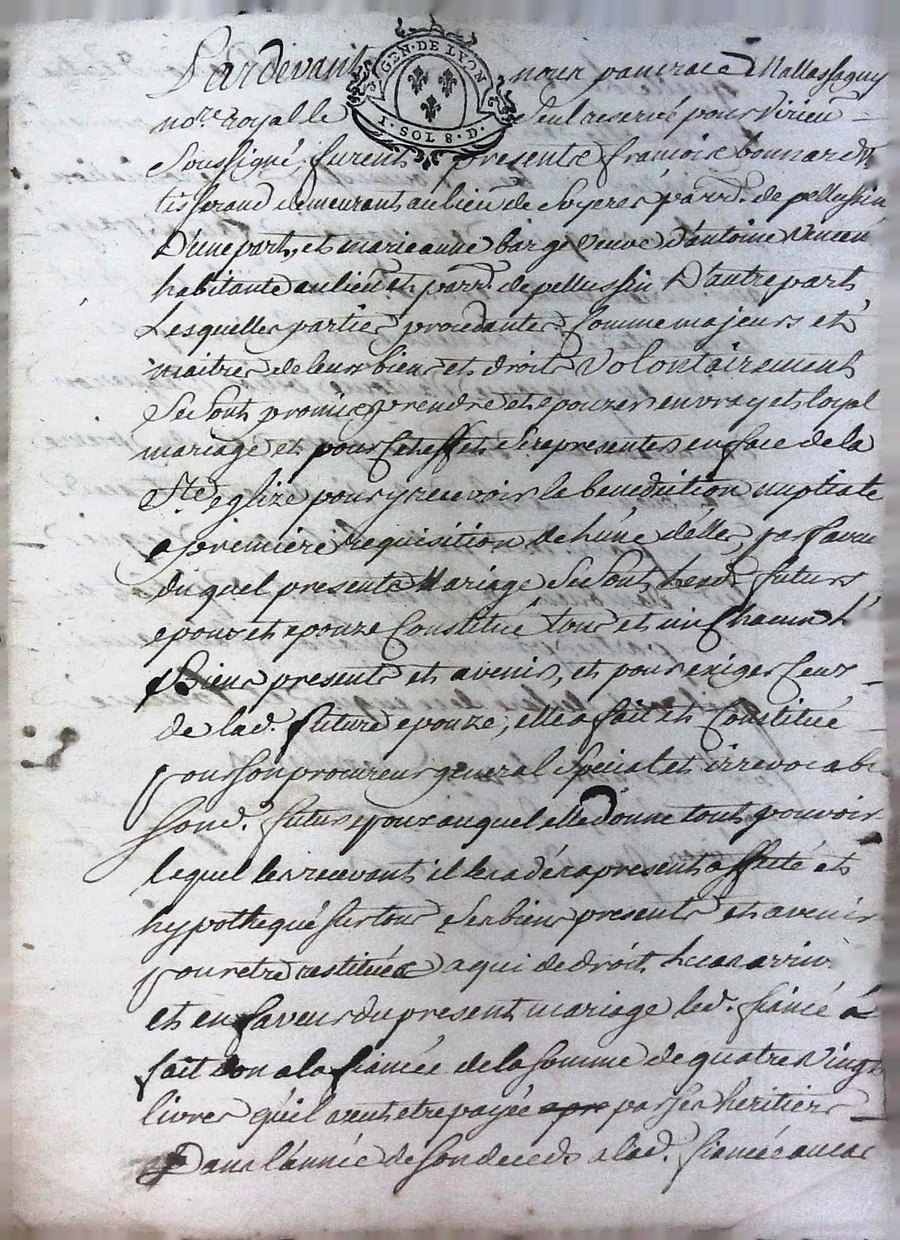 GEN. DE LYON
1. SOL 8. D.
Pardevant nous pancrace Mallassagny
no.re royal le seul reservé pour Virieu
Soussigné, furent presents francois bonnard
tisserand demeurant au lieu de Soyeres parr.e de pellussin
D'une part, et marie anne barge veuve d'antoine
habitante au lieu et parr.e de pellussin D'autre part
Lesquelles parties procedantes comme majeurs et
maitres de leurs biens et droits Volontairement
Se sont promis prendre et epouzer en vray et loyal
mariage et pour cet effet se representer en face de la
Ste eglize pour y recevoir la benediction nuptiale
a premiere requisition de l'une d'elles, par faveur
du quel present Mariage Se sont lesd. futurs
epoux et epouze Constitué tous et un Chacun l
Biens presents et avenir, et pour exiger Ceux
de lad. future epouze, elle a fait et Constitué
pour son procureur general special et irrevocab
Sond. futur epoux auquel elle donne tout pouvoir
lequel les recevant il les a dés apresent affecté et
hypothequé sur tous Ses biens presents et avenir
pour etre restitués a qui de droit le cas arriv.
et en faveur du present mariage led. fiancé a
fait don a la fiancée de la somme de quatre vingt
livres qu'il veut etre payée par Ses heritiers
Dans l'année de Son deceds a lad. fiancée au cas